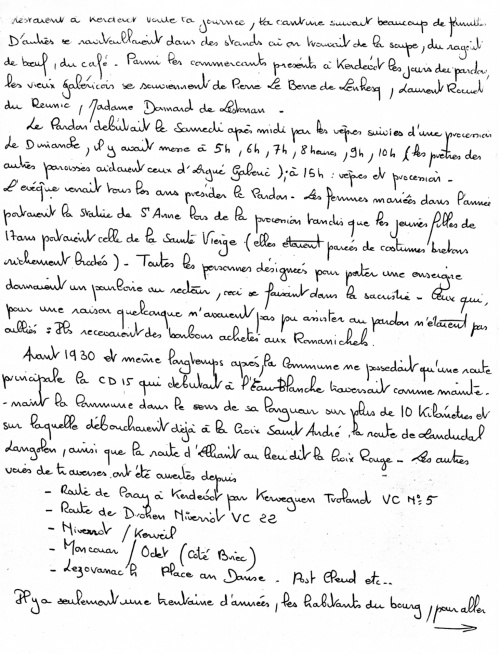 restaient à Kerdévot toute la journée, la cantine suivait beaucoup de famille.
D'autres se ravitaillaient dans des stands où on trouvait de la soupe, du ragoût
de bœuf, du café. Parmi les commerçants présents à Kerdévot les jours du pardon,
les vieux gabéricois se souviennent de Pierre Le Berre de Lenhesq, Laurent
du Reunic, Madame de Lestonan.
Le Pardon débutait le Samedi après midi par les vêpres suivies d'une procession
Le Dimanche, il y avait messe à 5h, 6h, 7h, 8 heures, 9h, 10h (les prêtres des
autres paroisses aidaient ceux d'Ergué Gabéric); à 15h : vêpres et procession -
L'évêque venait tous les ans présider le Pardon - Les femmes mariées dans l'année
portaient la statue de St Anne lors de la procession tandis que les jeunes filles de
17 ans portaient celle de la Sainte Vierge (elles étaient parées de costumes bretons
richement brodés) - Toutes les personnes désignées pour porter une enseigne
donnaient un pourboire au recteur, ceci se faisant dans la sacristie - Ceux qui,
pour une raison quelconque n'avaient pas pu assister au pardon n'étaient pas
oubliés : Ils recevaient des bonbons achetés aux Romanichels.
Avant 1930 et même longtemps après, la Commune ne possédait qu'une route
principale la CD 15 qui débutait à l'Eau Blanche traversait comme mainte-
-nant la Commune dans le sens de sa longueur sur plus de 10 Kilomètres et
sur laquelle débouchaient déjà à la Croix Saint André, la route de Landudal
Langolen, ainsi que la route d'Elliant au lieu dit la Croix Rouge - Les autres
voies de traverses ont été ouvertes depuis
- Route de Paray à Kerdévot par Kerveguen Troland VC N° 5
- Route de Niverrot VC 22
- Niverrot / Kerveil
- Moncouar / Odet (Côté Briec)
- Lezouanac'h Place an Danse - Post Cleud etc..
Il y a seulement une trentaine d'années, les habitants du bourg, pour aller
→